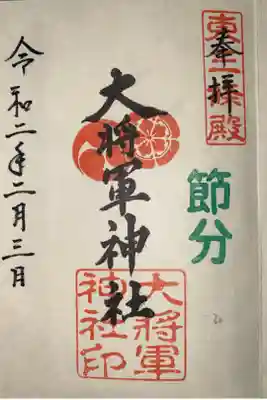 東三條殿
奉拝
節分
大将軍神社
大將軍
神社印
令和二年二月三日